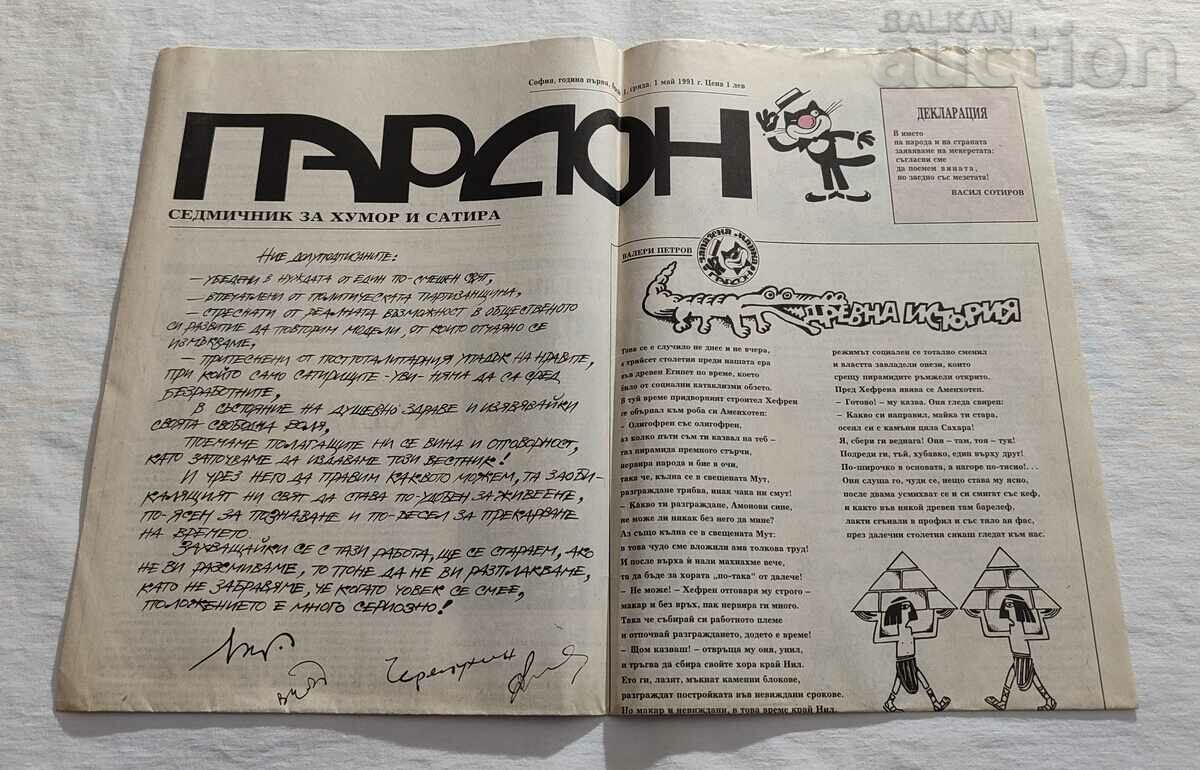 BALKAN
auction
София, година първа, 1, сряда, 1 май 1991 г. Цена 1 лев
ПАРДОН
СЕДМИЧНИК ЗА ХУМОР И САТИРА
ДЕКЛАРАЦИЯ
В името
на народа и на страната
заявяваме на мекеретата:
съгласни сме
да поемем вината,
но заедно със мезетата!
ВАСИЛ СОТИРОВ
Ние долуподписаните:
– УБЕДЕНИ В НУЖДАТА ОТ ЕДИН ПО-СМЕШЕН СВЯТ,
– ВПЕЧАТЛЕНИ ОТ ПОЛИТИЧЕСКАТА ПАРТИЗАНЩИНА,
– СТРЕСНАТИ ОТ РЕАЛНАТА ВЪЗМОЖНОСТ В ОБЩЕСТВЕНОТО
СИ РАЗВИТИЕ ДА ПОВТОРИМ МОДЕЛИ, ОТ КОИТО ОТЧАЯНО СЕ
ИЗМЪКВАМЕ,
– ПРИТЕСНЕНИ ОТ ПОСТТОТАЛИТАРНИЯ УПАДЪК НА НРАВИТЕ,
ПРИ КОЙТО САМО САТИРИЦИТЕ – УВИ – НЯМА ДА СА СРЕД
БЕЗРАБОТНИТЕ,
В СЪСТОЯНИЕ НА ДУШЕВНО ЗДРАВЕ И ИЗЯВЯВАЙКИ
СВОЯТА СВОБОДНА ВОЛЯ,
ПОЕМАМЕ ПОЛАГАЩИТЕ НИ СЕ ВИНА И ОТГОВОРНОСТ,
КАТО ЗАПОЧВАМЕ ДА ИЗДАВАМЕ ТОЗИ ВЕСТНИК!
И ЧРЕЗ НЕГО ДА ПРАВИМ КАКВОТО МОЖЕМ, ТА ЗАОБИ-
КАЛЯЩИЯТ НИ СВЯТ ДА СТАВА ПО-УДОБЕН ЗА ЖИВЕЕНЕ,
ПО-ЯСЕН ЗА ПОЗНАВАНЕ И ПО-ВЕСЕЛ ЗА ПРЕКАРВАНЕ
НА ВРЕМЕТО.
ЗАХВАЩАЙКИ СЕ С ТАЗИ РАБОТА, ЩЕ СЕ СТАРАЕМ, АКО
НЕ ВИ РАЗСМИВАМЕ, ТО ПОНЕ ДА НЕ ВИ РАЗПЛАКВАМЕ,
КАТО НЕ ЗАБРАВЯМЕ, ЧЕ КОГАТО ЧОВЕК СЕ СМЕЕ,
ПОЛОЖЕНИЕТО Е МНОГО СЕРИОЗНО!
ВАЛЕРИ ПЕТРОВ
ДРЕВНА ИСТОРИЯ
Това се е случило не днес и не вчера,
а трийсет столетия преди нашата ера
във древен Египет по време, което
било от социални катаклизми обзето.
В туй време придворният строител Хефрен
се обърнал към роба си Аменхотеп:
– Олигофрен си олигофрен,
аз колко пъти съм ти казвал на теб –
таз пирамида премного стърчи,
нервира народа и бие в очи,
така че, кълна се в свещената Мут,
разграждане трябва, инак чака ни смут!
– Какво ти разграждане, Амонови сине,
не може ли някак без него да мине?
Аз също кълна се в свещената Мут:
в това чудо сме вложили ама толкова труд!
И после върха ѝ нали махнахме вече,
та да бъде за хората „по-така“ от далече!
– Не може! – Хефрен отговаря му строго –
макар и без връх, пак нервира ги много.
Така че събирай си работното племе
и отпочвай разграждането, додето е време!
– Щом казваш! – отвръща му оня, унил,
и тръгва да сбира свойте хора край Нил.
Ето ги, лазят, мъкнат каменни блокове,
разграждат постройката във невиждани срокове.
Но макар и невиждани, в това време край Нил.
режимът социален се тотално сменил
и властта завладели онези, които
срещу пирамидите ръмжели открито.
Пред Хефрена явява се Аменхотеп.
– Готово! – му казва. Оня гледа свиреп:
– Какво си направил, майка ти стара,
осеял си с камъни цяла Сахара!
Я, сбери ги веднага! Оня – там, тоя – тук!
Подреди ги, тъй, хубавко, един върху друг!
По-широчко в основата, а нагоре по-тясно!. . .
Оня слуша го, чуди се, нещо става му ясно,
после двама усмихват се и си смигат със кеф,
и както във някой древен там барелеф,
лакти сгънали в профил и със тяло ан фас,
през далечни столетия сякаш гледат към нас.